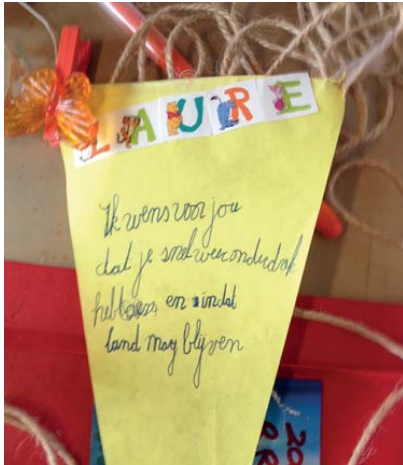 LAURE
Ik wens voor jou
dat je snel weer onderdak
hebt en in dat
land mag blijven
20